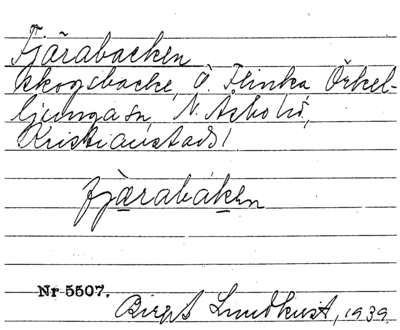 Fjärabacken
skogsbacke, Ö. Flinka Örkel-
ljunga sn, N. Åsbo hd,
Kristianstads l
fjærabaken
Nr 5507.
Birgit Lundkvist, 1939.